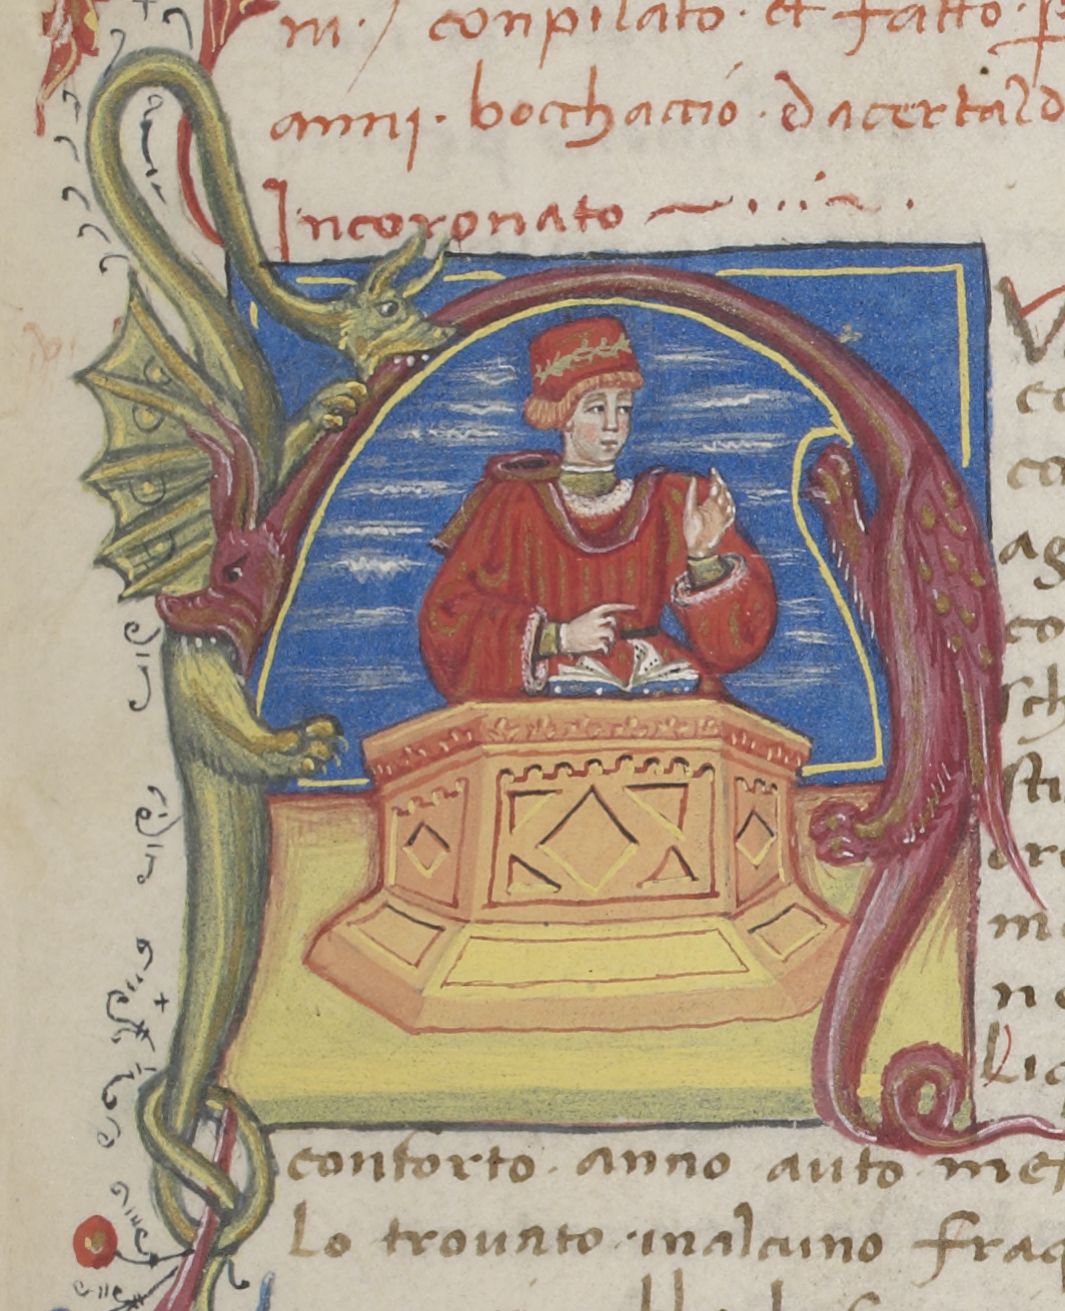 m · / conpilato · et fatto · p
anni · bocchaccio · dacertald
Incoronato
V
co
co
ag
co
sch
sti
ore
mo
no
lic
conforto · anno auto mes
Lo trouato · inalcuno fraq